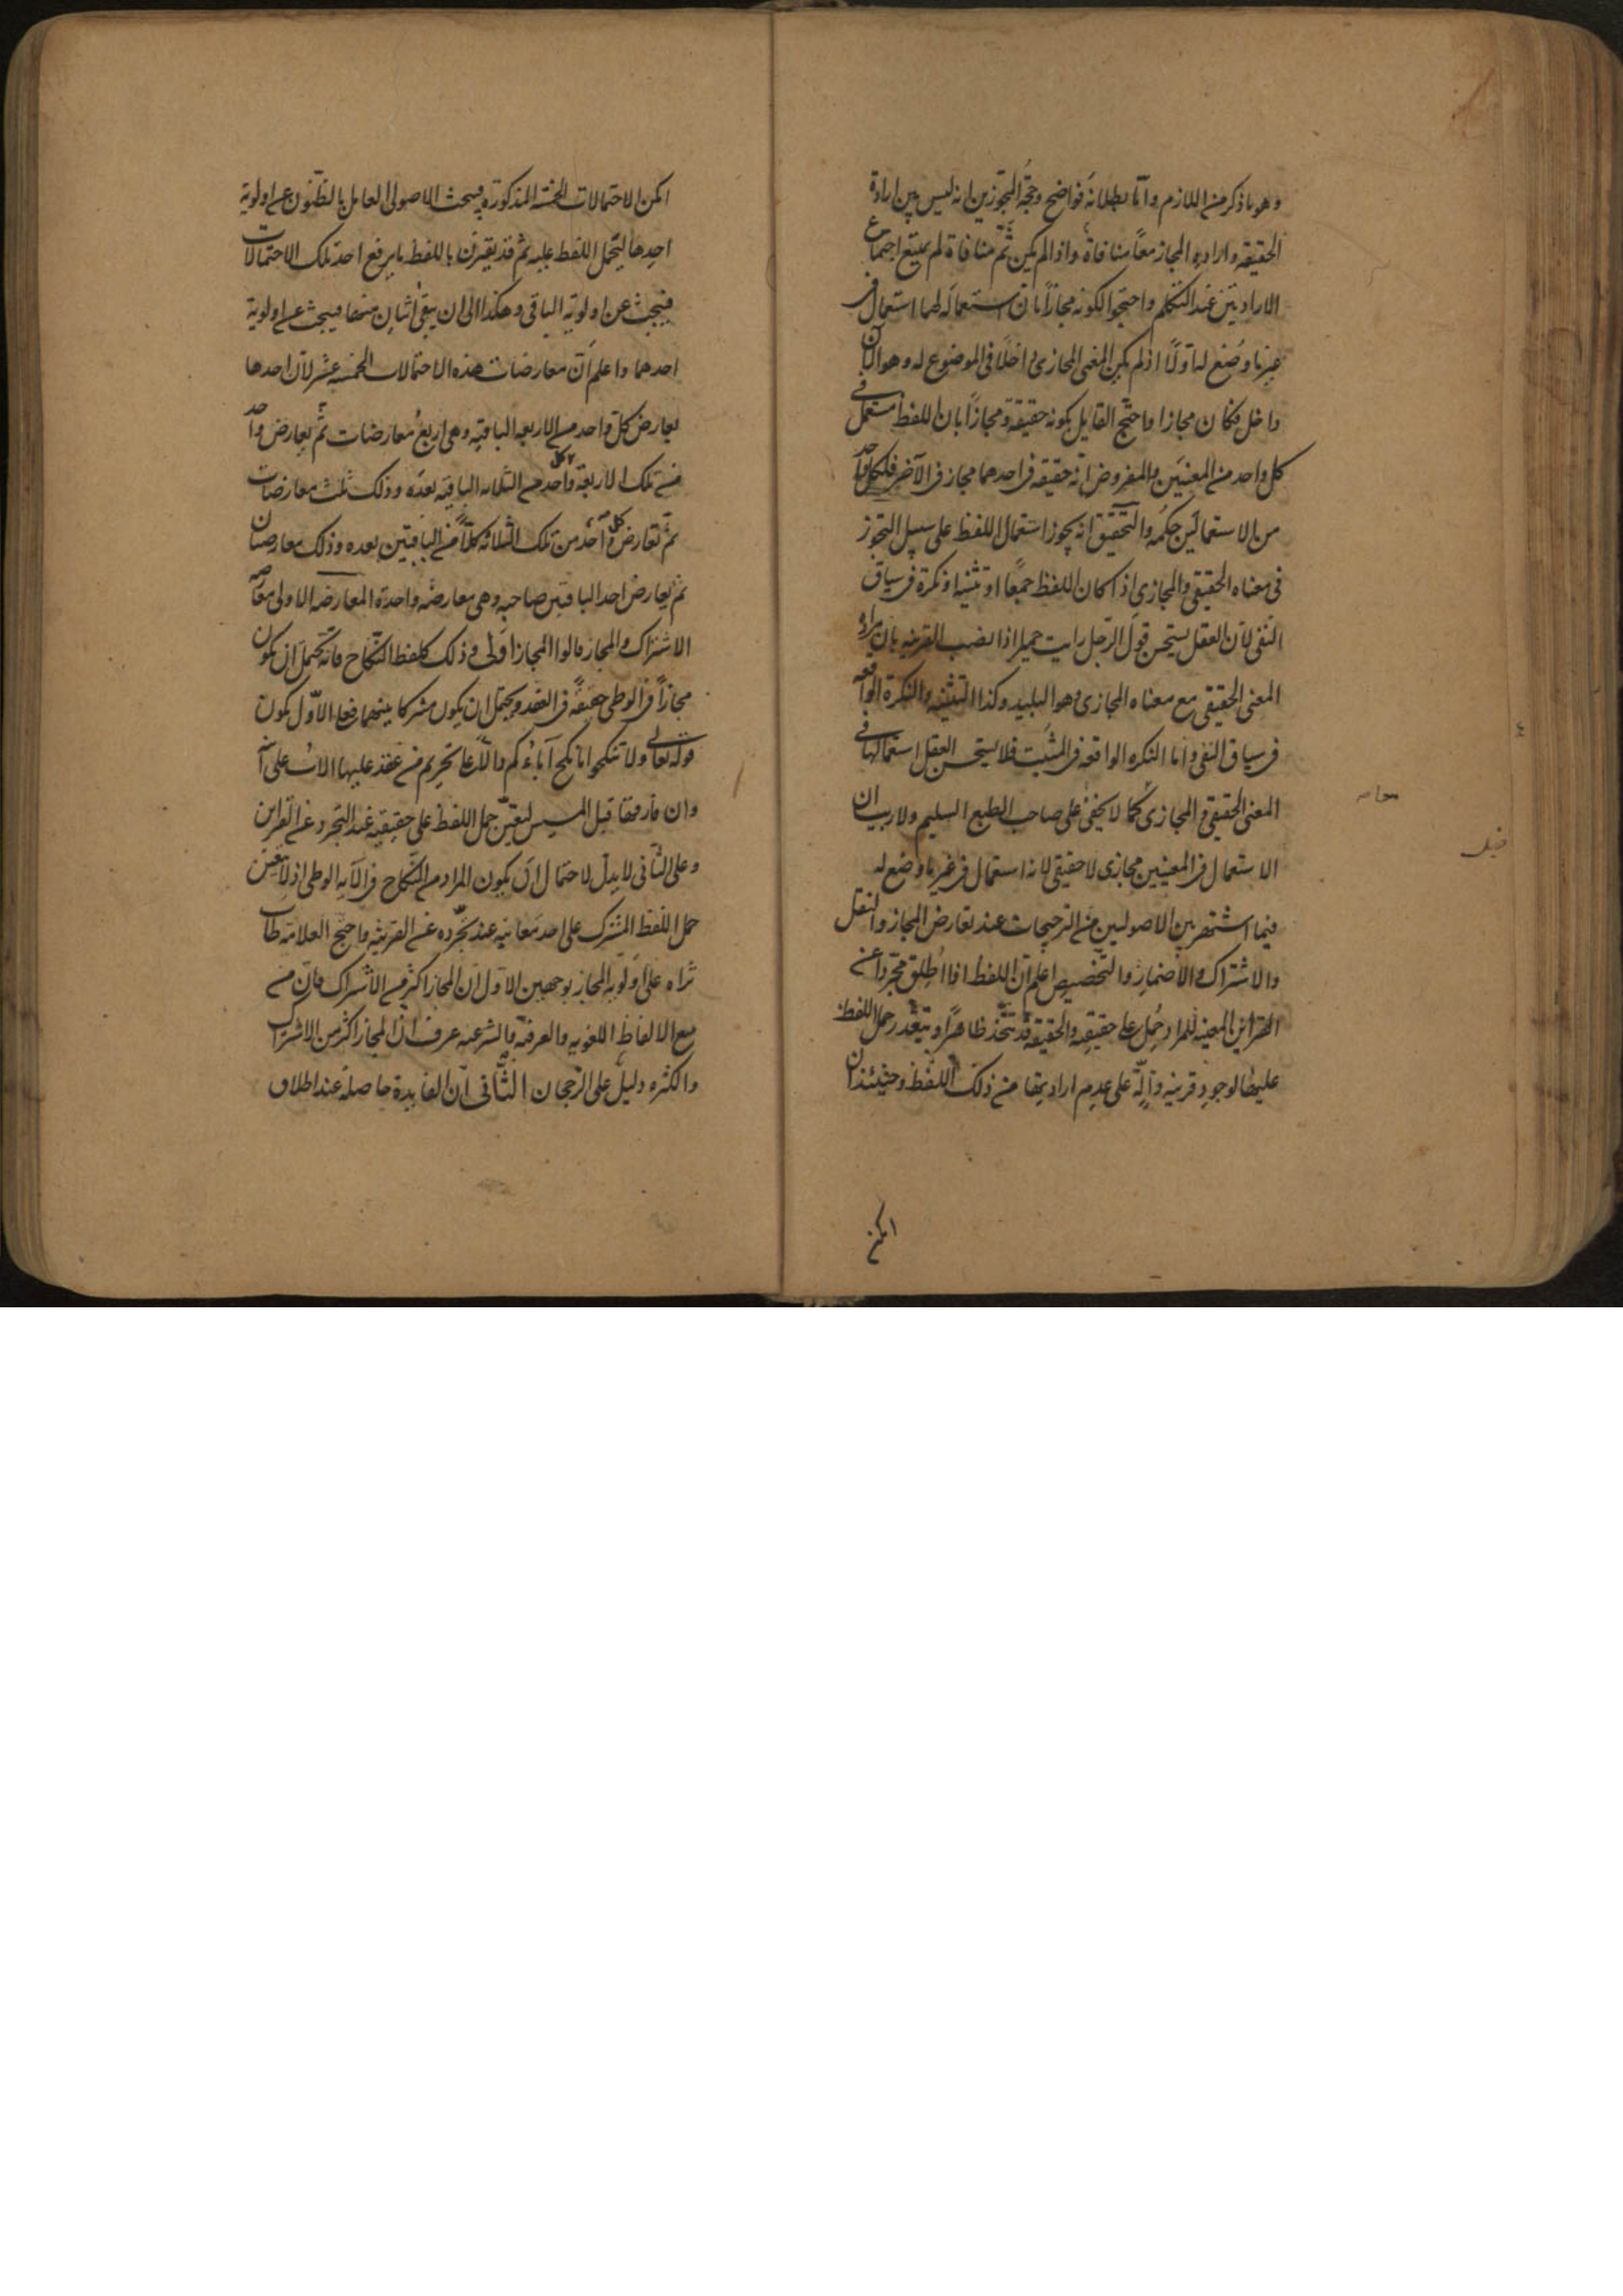 وهو ما ذكر من اللازم واما بطلانه فواضح وحجة المجوزين انه ليس بين ارادة
الحقيقه وارادة المجاز معًا منافاة واذا لم يكن ثم منافاة لم يمتنع اجتماع
الارادتين عند التكلم واحتجوا لكونه مجازًا بان استعماله لهما استعمال فى
غير ما وضع له اوّلًا اذ لم يكن المعنى المجازى داخلًا فى الموضوع له وهو الآن
داخل فكان مجازا واحتج القايل بكونه حقيقة ومجازًا بان اللفظ مستعمل فى
كل واحد من المعنيين والمفروض انه حقيقه فى احدهما مجاز فى الآخر فلكل واحد
من الاستعمالين حكمه والتحقيق انه يجوز استعمال اللفظ على سبيل التجوز
فى معناه الحقيقى والمجازى اذا كان اللفظ جمعًا او تثنيه او نكرة فى سياق
النفى لان العقل يستحسن قول الرجل رايت حميرا اذا نصب القرينه بان مراده
المعنى الحقيقى مع معناه المجازى وهو البليد وكذا التثنيه والنكرة الواقعه
فى سياق النفى واما النكره الواقعه فى المثبت فلا يستحسن العقل استعمالها فى
المعنى الحقيقى والمجازى كما لا يخفى على صاحب الطبع السليم ولا ريب ان
الاستعمال فى المعنيين مجازى لا حقيقى لانه استعمال فى غير ما وضع له
فيما اشتهر بين الاصوليين من الترجيحات عند تعارض المجاز والنقل
والاشتراك والاضمار والتخصيص اعلم ان اللفظ اذا اُطلق مجرّدا عن
القراين المعينه للمراد حُمل على حقيقته والحقيقة قد تتخذ ظاهرًا ويتعذر حمل اللفظ
عليها لوجود قرينه دالّة على عدم ارادتها من ذلك اللفظ وحينئذ ان
امكن
امكن الاحتمالات الخمسه المذكورة فيبحث الاصولى العامل بالظنون عن اولوية
احدها ليحمل اللفظ عليه ثم قد يقترن باللفظ ما يرفع احد تلك الاحتمالات
فيبحث عن اولوية الباقى وهكذا الى ان يبقى اثنان منها فيبحث عن اولوية
احدهما واعلم ان معارضات هذه الاحتمالات الخمسه عشر لان احدها
يعارض كل واحد من الاربعه الباقيه وهى اربع معارضات ثم يعارض واحد
من تلك الاربعة كل واحد من الثلاثه الباقيه بعده وذلك ثلث معارضات
ثم تعارض واحد من تلك الثلاثه كلًّا من الباقيتين بعده وذلك معارضتان
ثم يعارض احد الباقيتين صاحبه وهى معارضه واحدة المعارضه الاولى معارضه
الاشتراك والمجاز قالوا المجاز اولى وذلك كلفظ النكاح فانه يحتمل ان يكون
مجازًا فى الوطى حقيقةً فى العقد ويحتمل ان يكون مشتركا بينهما فعلى الاوّل يكون
قوله تعالى ولا تنكحوا ما نكح آباؤكم دالًّا على تحريم من عقد عليها الاب على ابنه
وان فارقها قبل المسيس لتعيّن حمل اللفظ على حقيقته عند التجرد عن القراين
وعلى الثانى لا يدل لاحتمال ان يكون المراد من النكاح فى الآيه الوطى اذ لا يتعين
حمل اللفظ المشترك على احد معانيه عند تجرّده عن القرينه واحتج العلامه طاب
ثراه على اولويه المجاز بوجهين الاول ان المجاز اكثر من الاشتراك فان من
تتبع الالفاظ اللغويه والعرفيه والشرعيه عرف ان المجاز اكثر من الاشتراك
والكثره دليل على الرجحان الثانى ان الفايدة حاصلة عند اطلاق